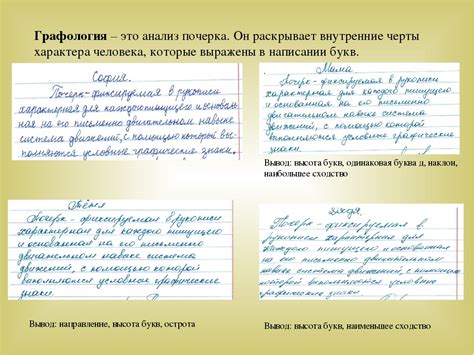 Графология – это анализ почерка. Он раскрывает внутренние черты
характера человека, которые выражены в написании букв.
София.
Почерк - фиксируемая в рукописи
характерная для каждого пишущего и основан-
ная на его письменно двигательном навыке
система движений, с помощью которой вы-
полняются условные графические знаки.
Мама
Почерк - фиксируемая в рукописи
характерная для каждого пишущего
и основанная на его письменно
двигательном навыке система
движений, с помощью которой
выполняются условные графические
знаки.
Вывод: высота букв, одинаковая буква д, наклон,
наибольшее сходство
Тётя
Почерк - фиксируемая в рукописи
характерная для каждого пишущего
и основанная на его письменно
двигательном навыке система
движений, с помощью которой
выполняются условные графические
знаки
Вывод: направление, высота букв, острота
Дядя.
Почерк - фиксируемая в
рукописи характерная для
каждого пишущего и основанная
на его письменно двигательном
навыке система движений, с помощью
которой выполняются условные
графические знаки.
Вывод: высота букв, наименьшее сходство